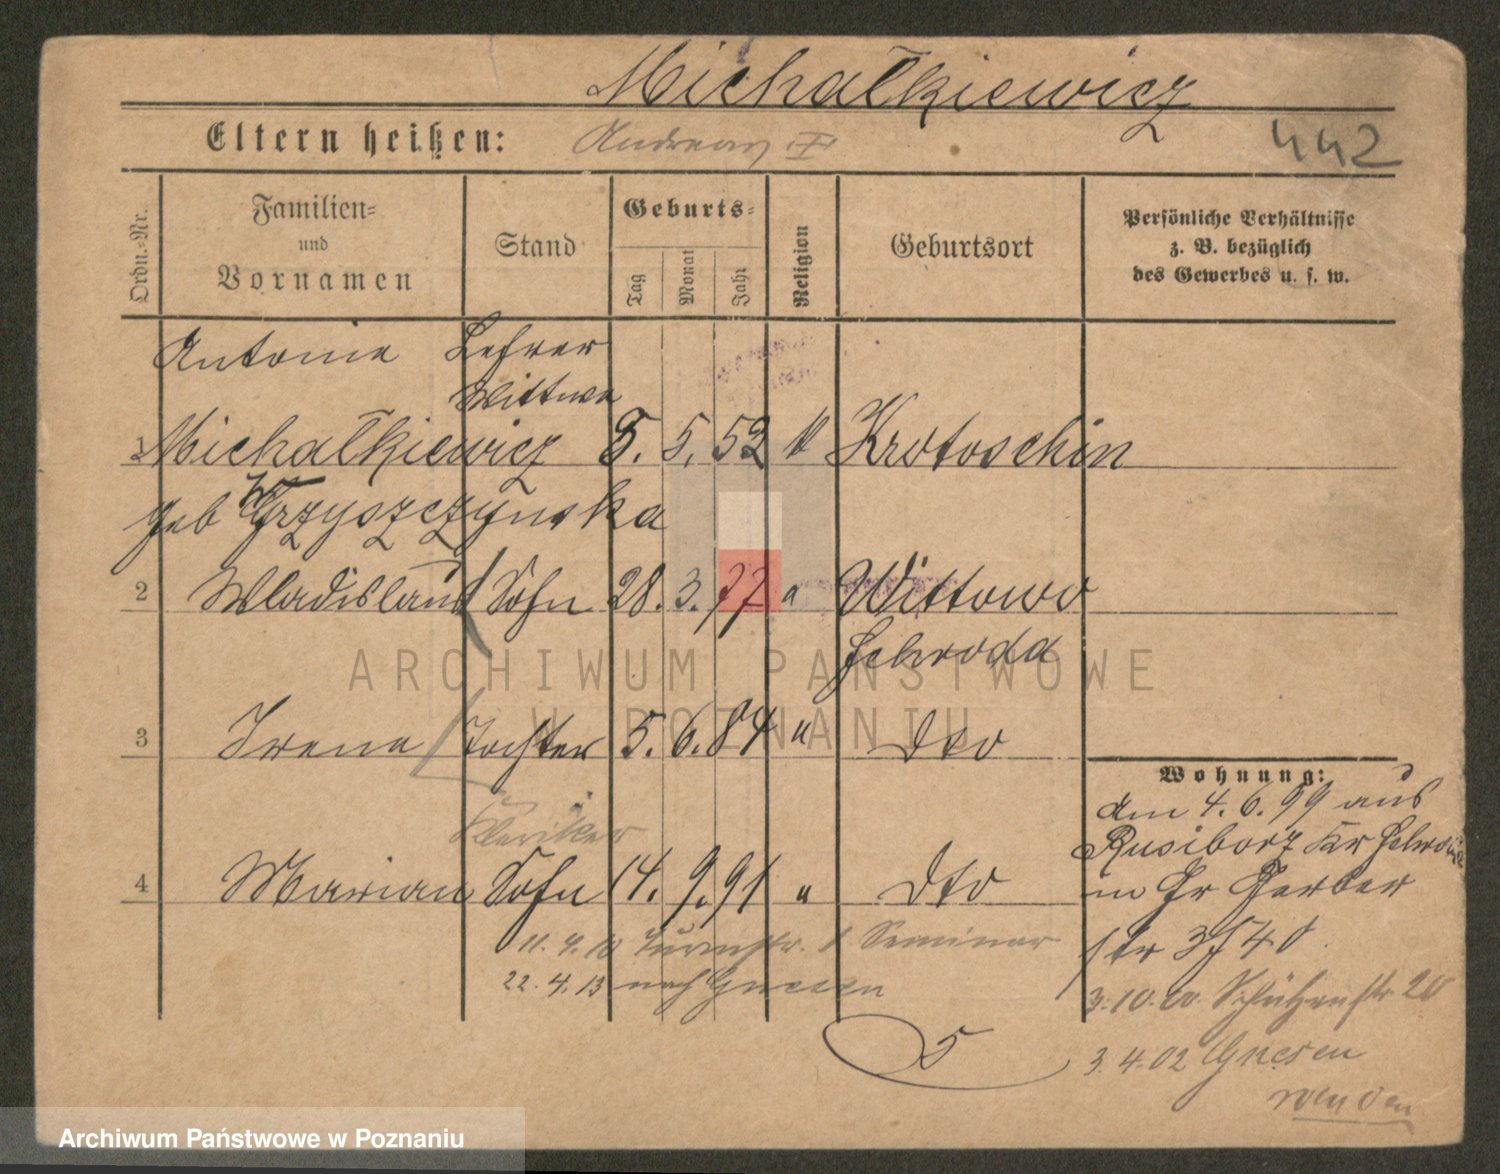 Michałkiewicz
Eltern heißen: Andreas
442
Ordn.=Nr.
Familien=
und
Vornamen
Stand
Geburts=
Tag
Monat
Jahr
Religion
Geburtsort
Persönliche Verhältnisse
z. B. bezüglich
des Gewerbes u. s. w.
Antonie Lehrer
Wittwe
1 Michałkiewicz 5. 5. 52 k Krotoschin
geb Grzyszczynska
2 Wladislaus Sohn 28. 3. 77 " Wittowo
Schroda
3 Irene Tochter 5. 6. 84 " dto
Kleriker
4 Marian Sohn 14. 9. 91 " dto
Seminar
22. 4. 13 nach Gnesen
5
Wohnung:
am 4. 6. 99 aus
Rusiborz Kr Schroda
in Gr Gerber
str 40
3. 10. 00. Schützenstr 20
3. 4. 02 Gnesen
wenden
ARCHIWUM PAŃSTWOWE
W POZNANIU
Archiwum Państwowe w Poznaniu